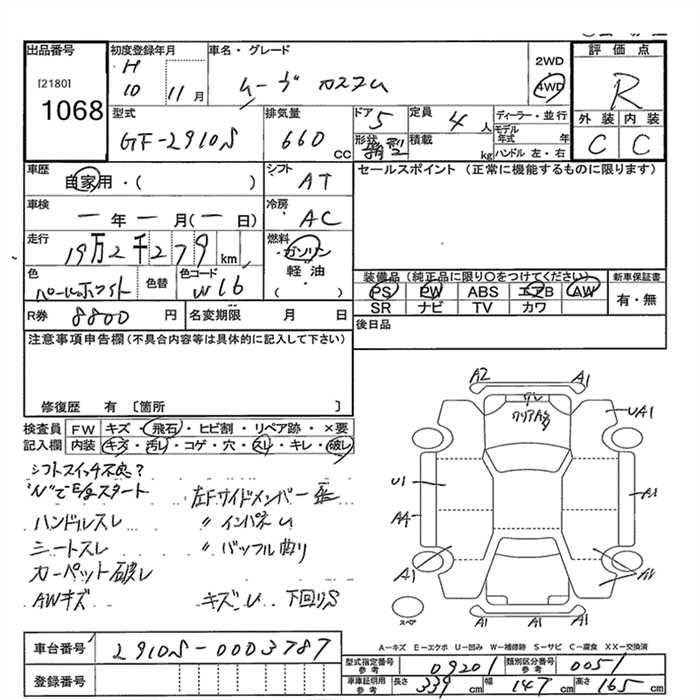 出品番号
[2180]
1068
初度登録年月
H
10 11月
車名・グレード
ムーヴ カスタム
2WD
4WD
評価点
R
外装 内装
C C
型式
GF-2910S
排気量
660 cc
ドア 5
形状
定員 4 人
積載 kg
ディーラー・並行
モデル年式 年
ハンドル 左・右
車歴
自家用・( )
シフト AT
車検
一年 一月(一日)
冷房 AC
走行
19万2千279 km
燃料
ガソリン
軽油
( )
色
パールホワイト
色替
色コード
W16
R券 8800 円
名変期限 月 日
セールスポイント (正常に機能するものに限ります)
装備品(純正品に限り○をつけてください)
PS PW ABS エアB AW
SR ナビ TV カワ
新車保証書
有・無
後日品
注意事項申告欄(不具合内容等は具体的に記入して下さい)
修復歴 有〔箇所 〕
検査員記入欄
FW キズ・飛石・ヒビ割・リペア跡・×要
内装 キズ・汚レ・コゲ・穴・スレ・キレ・破レ
シフトスイッチ不良?
"N"でE/gスタート
ハンドルスレ
シートスレ
カーペット破レ
AWキズ
左Fサイドメンバー
〃 インパネU
〃 バッフル曲り
キズ、U 下回りS
A2 A1
クリアハゲ
UA1
U1
A4
A1
A1
A1
スペア
A1 A1 A1
A-キズ E-エクボ U-凹み W-補修跡 S-サビ C-腐食 XX-交換済
車台番号 2910S-0003787
登録番号
型式指定番号 参考 09201
類別区分番号 参考 0051
車車証明用 参考 長さ 339 cm 幅 147 cm 高さ 165 cm